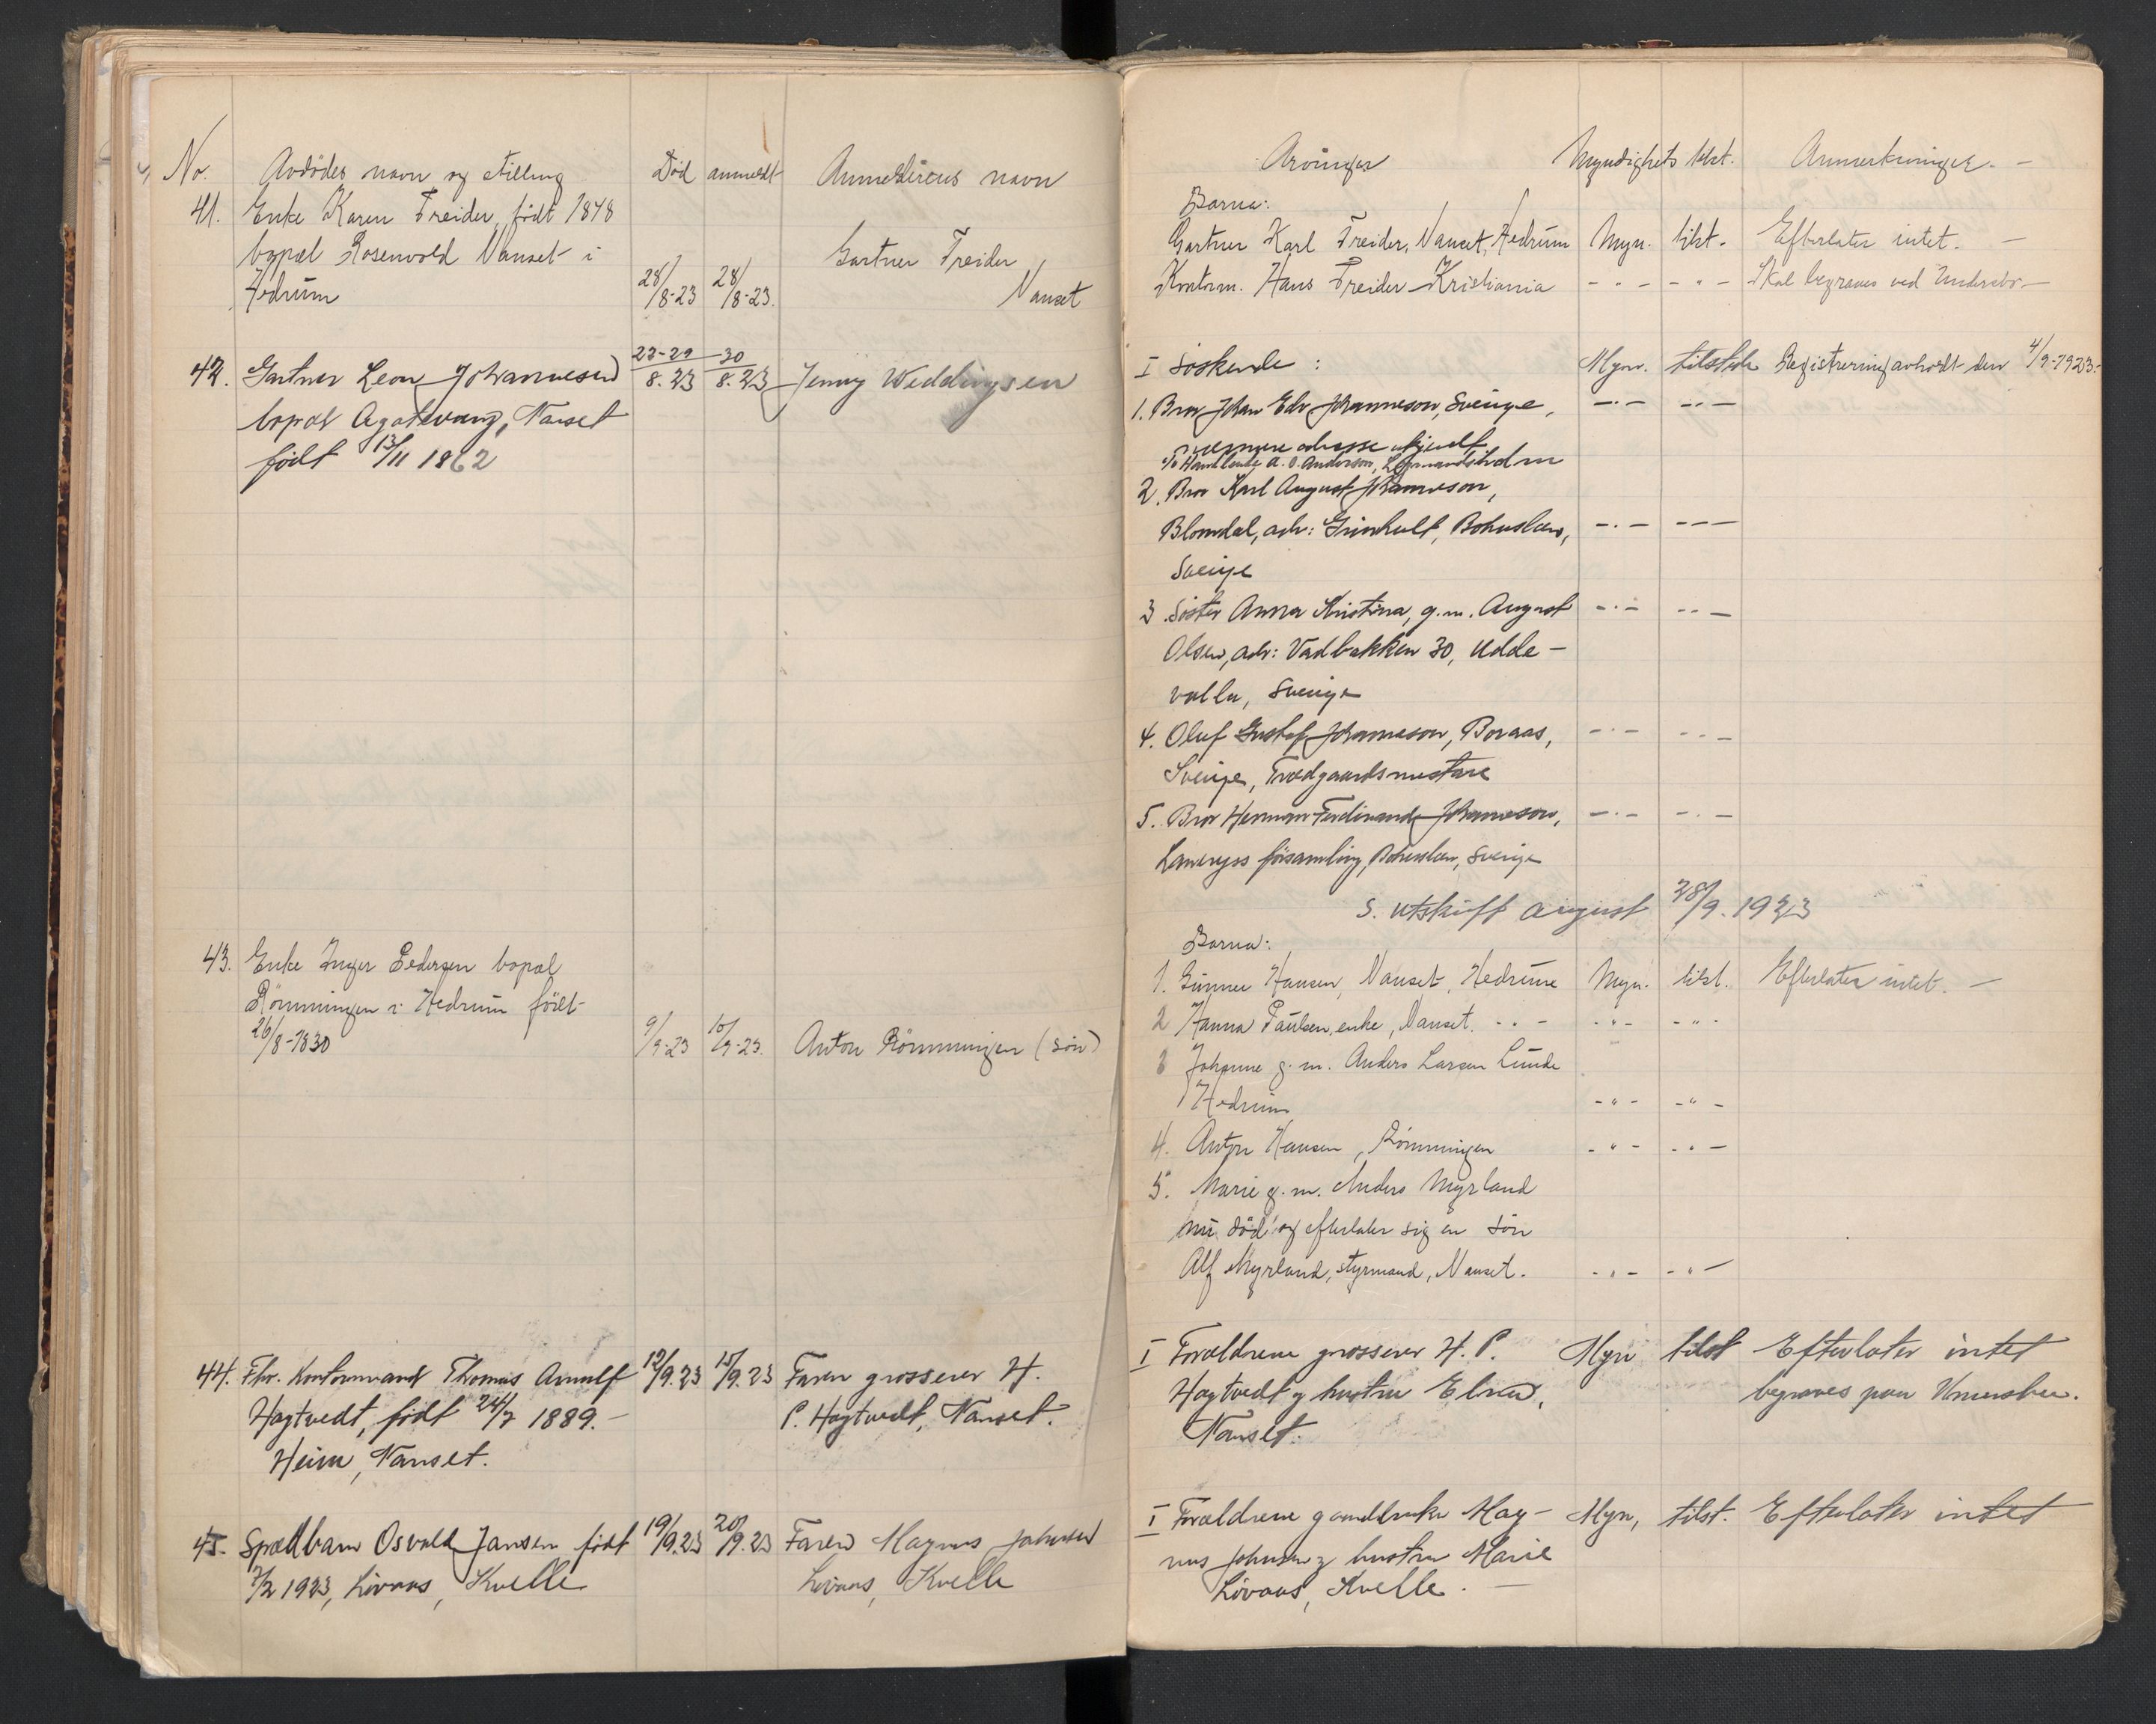 No. Avdødes navn og stilling Død anmeldt Anmelderens navn
41. Enke Karen Freider, født 1848
bopæl Rosenvold Nanset i Gartner Freider
Hedrum 28/8-23 28/8-23. Nanset
42. Gartner Leon Johannesen 22-29/8.23 30/8.23 Jenny Weddingsen
bopæl Agatevang, Nanset
født 13/11 1862
43. Enke Inger Pedersen bopæl
Rømmingen i Hedrum født
26/8-1830 9/9-23 10/9-23. Anton Rømmingen (søn)
44. Fhv. Kontormand Thomas Arnulf 12/9.23 15/9.23 Faren grosserer H.
Hagtvedt, født 24/7 1889.- P. Hagtvedt, Nanset.
Heim, Nanset.
45. Spædbarn Osvald Jansen født 19/9.23 20/9.23 Faren Magnus Johnsen
7/2 1923, Løvaas, Kvelle Løvaas, Kvelle
Arvinger Myndighets tilst. Anmerkninger. -
Barna:
Gartner Karl Freider, Nanset, Hedrum Myn. tilst. Efterlater intet. -
Kontorm. Hans Freider Kristiania - " - - " - Skal begraves ved Undersbo. -
I Søskende : Myn. tilstede Registrering avholdt den 4/9-1923.
1. Bror Johan Edv. Johanneson, Sverige, - " - - " -
nærmere adresse ukjendt
c/o Handlande A. O. Anderson,
2. Bror Karl August Johanneson,
Blomdal, adr: Grinhult, Bohuslæn, - " - - " -
Sverige
3. Søster Anna Kristina, g.m. August - " - - " -
Olsen, adr: Vadbakken 30, Udde-
valla, Sverige
4. Oluf Gustaf Johanneson, Boraas, - " - - " -
Sverige, Trædgaardsmestare
5. Bror Herman Ferdinand Johanneson, - " - - " -
församling, Bohuslæn, Sverige
S. utskrift august 28/9. 1923
Barna:
1. Gunner Hansen, Nanset, Hedrum Myn. tilst. Efterlater intet. -
2 Hanna Paulsen, enke, Nanset. - " - - " - - " -
3 Johanne g. m. Anders Larsen Lunde
Hedrum - " - - " -
4. Anton Hansen, Rømmingen - " - - " -
5. Marie g. m. Anders Myrland
nu død og efterlater sig en søn
Alf Myrland, styrmand, Nanset. - " - - " -
I Forældrene grosserer H. P. Myn tilst Efterlater intet
Hagtvedt og hustru Elina, begraves paa Undersbo.
Nanset.
I Forældrene gaardbruker Mag- Myn, tilst. Efterlater intet
nus Johnsen og hustru Marie
Løvaas, Kvelle. -